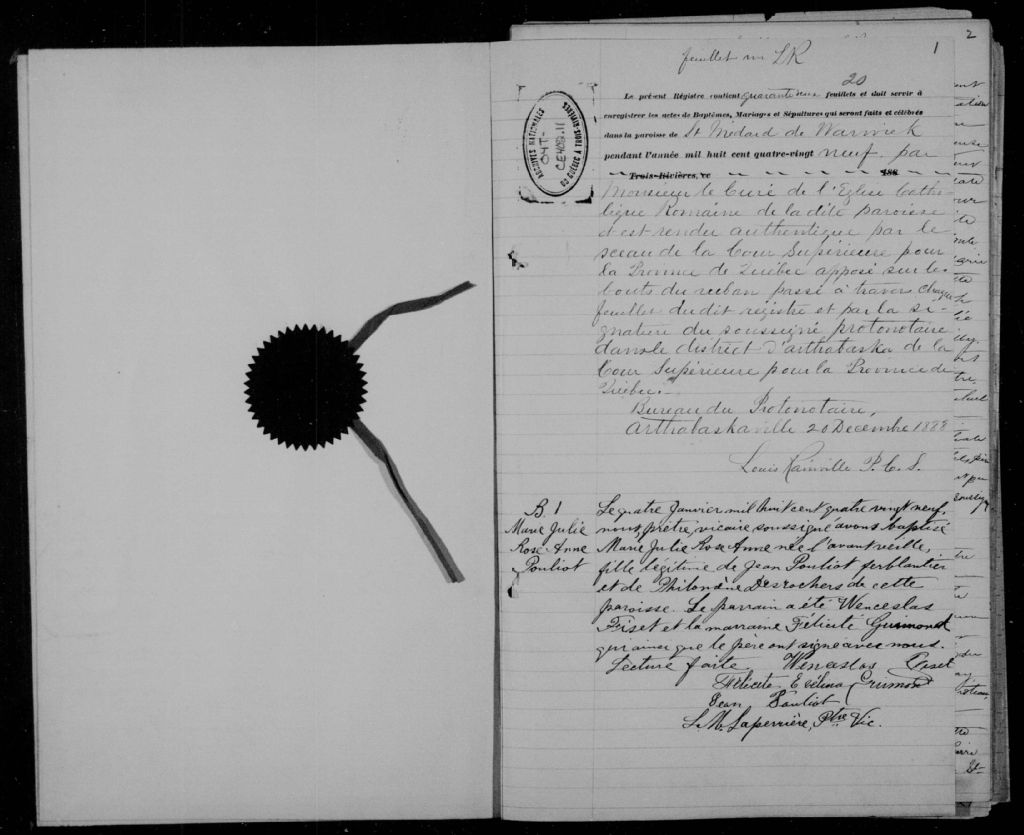 2
1
feuillet un LR
20
Le présent Régistre contient quarante neuf feuillets et doit servir à
enregistrer les actes de Baptêmes, Mariages et Sépultures qui seront faits et célébrés
dans la paroisse de St Médard de Warwick
pendant l'année mil huit cent quatre-vingt neuf par
Trois-Rivières, ce 188
Monsieur le Curé de l'Eglise Catho-
lique Romaine de la dite paroisse
et est rendu authentique par le
sceau de la Cour Supérieure pour
la Province de Québec apposé sur les
bouts du ruban passé à travers chaque
feuillet du dit régistre et par la si-
gnature du soussigné protonotaire
dans le district d'arthabaska de la
Cour Supérieure pour la Province de
Québec.
Bureau du Protonotaire,
Arthabaskaville 20 Decembre 1888
Louis Rainville P. C. S.
ARCHIVES NATIONALES
04T-
DU QUÉBEC A TROIS-RIVIÈRES
B 1
Marie Julie
Rose Anne
Pouliot
Le quatre Janvier mil huit cent quatre vingt neuf,
nous, prêtre, vicaire soussigné avons baptisé
Marie Julie Rose Anne née l'avant veille,
fille légitime de Jean Pouliot ferblantier
et de Philomène Desrochers de cette
paroisse. Le parrain a été Wenceslas
Fiset et la marraine Félicité
qui ainsi que le père ont signé avec nous.
Lecture faite. Wenceslas Fiset
Félicité
Jean Pouliot
L. M. Laperrière, Ptre Vic.